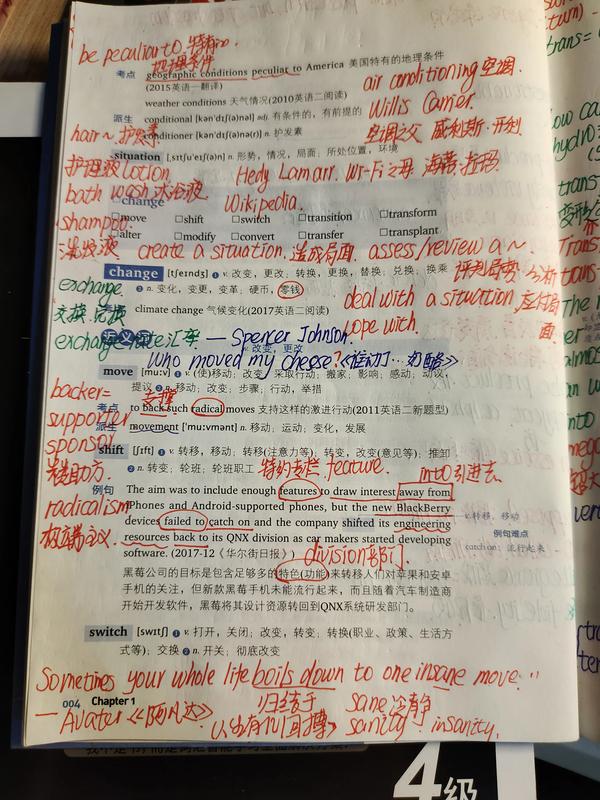 be peculiar to 特有的.
地理条件
考点 geographic conditions peculiar to America 美国特有的地理条件
(2015英语一翻译)
air conditioning 空调.
weather conditions 天气情况(2010英语二阅读)
Willis Carrier.
派生 conditional [kən'dɪʃ(ə)nəl] adj. 有条件的，有前提的
conditioner [kən'dɪʃ(ə)nə(r)] n. 护发素
hair~ 护发素
空调之父 威利斯·开利
situation [ˌsɪtʃu'eɪʃ(ə)n] n. 形势，情况，局面；所处位置，环境
护理液 lotion
Hedy Lamarr. Wi-Fi之母 海蒂·拉玛
bath wash 沐浴液
change
Wikipedia.
□move □shift □switch □transition □transform
shampoo.
□alter □modify □convert □transfer □transplant
洗发液 create a situation. 造成局面. assess/review a ~
change [tʃeɪndʒ] ❶ v. 改变，更改；转换，更换，替换；兑换，换乘
评判局势
❷ n. 变化，变更，变革；硬币，零钱
exchange
交换.兑换
deal with a situation. 应付局面.
climate change 气候变化(2017英语二阅读)
cope with.
exchange rate 汇率 — Spencer Johnson.
改变，更改
Who moved my cheese?《谁动了…奶酪》
move [muːv] ❶ v. (使)移动；改变，采取行动；搬家；影响；感动；动议，
提议 ❷ n. 移动；改变；步骤；行动，举措
backer=
支持
考点 to back such radical moves 支持这样的激进行动(2011英语二新题型)
supporter
派生 movement ['muːvmənt] n. 移动；运动；变化，发展
sponsor
shift [ʃɪft] ❶ v. 转移，移动；转移(注意力等)；转变，改变(意见等)；推卸
❷ n. 转变；轮班；轮班职工 特约专栏 feature. into 引进去
赞助方.
例句 The aim was to include enough features to draw interest away from
radicalism
iPhones and Android-supported phones, but the new BlackBerry
devices failed to catch on and the company shifted its engineering
v.转移，移动
极端主义.
resources back to its QNX division as car makers started developing
例句难点
software. (2017-12《华尔街日报》) division 部门.
catch on：流行起来
黑莓公司的目标是包含足够多的特色(功能)来转移人们对苹果和安卓
手机的关注，但新款黑莓手机未能流行起来，而且随着汽车制造商
开始开发软件，黑莓将其设计资源转回到QNX系统研发部门。
switch [swɪtʃ] ❶ v. 打开，关闭；改变，转变；转换(职业、政策、生活方
式等)；交换 ❷ n. 开关；彻底改变
Sometimes your whole life boils down to one insane move."
归结于 sane 冷静
004 Chapter 1
— Avater《阿凡达》 sanity insanity.
4级